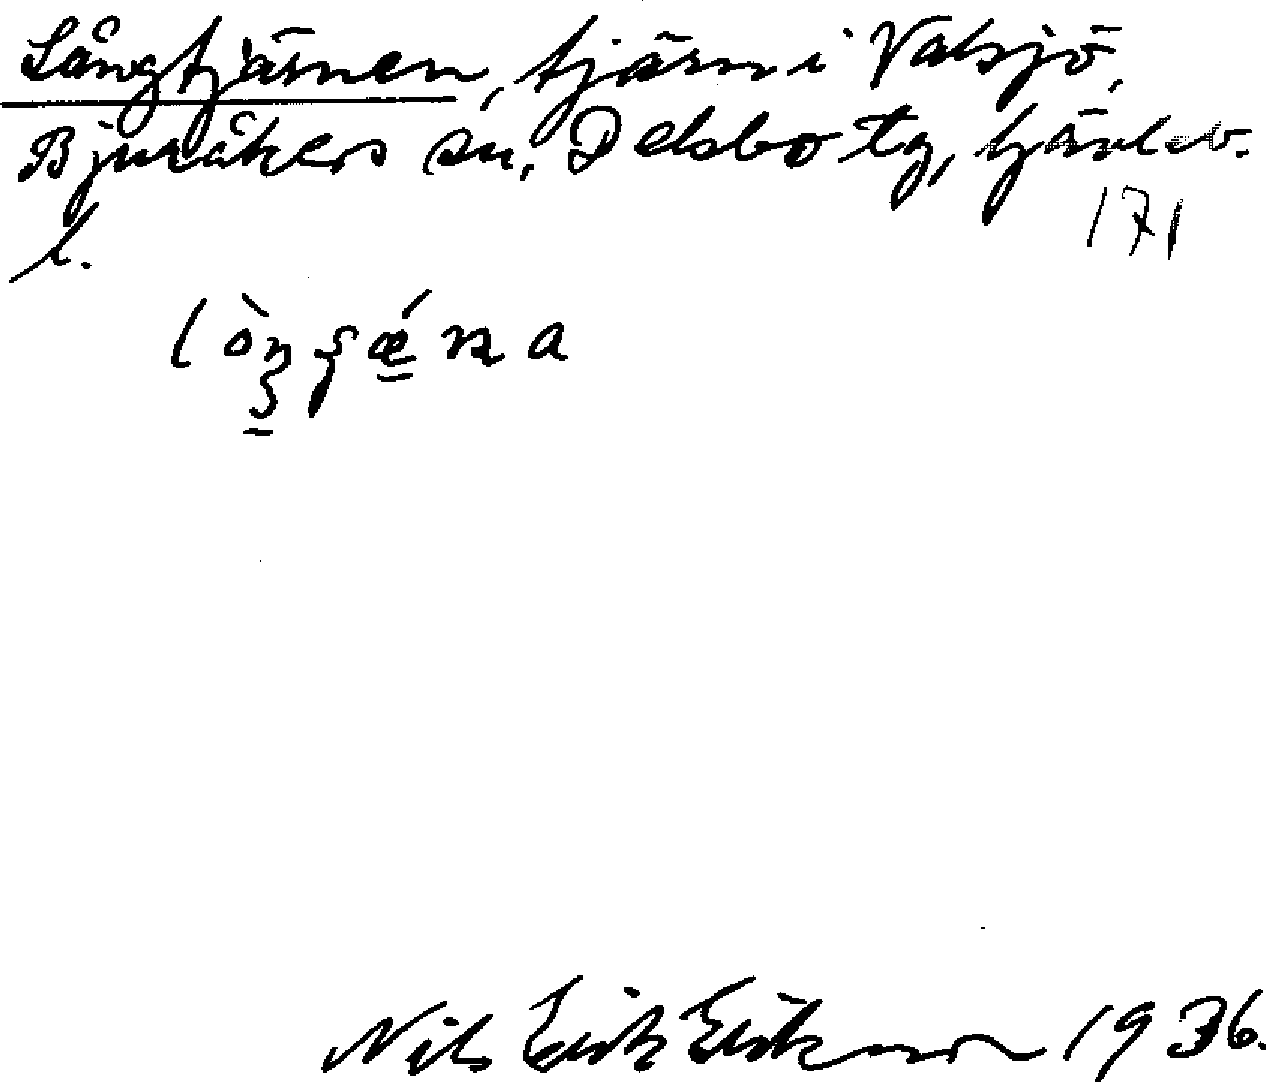 Långtjärnen, tjärn i Valsjö,
Bjuråkers sn, Delsbo tg, Gävleb.
171
l.
Nils Erik Eriksson 1936.